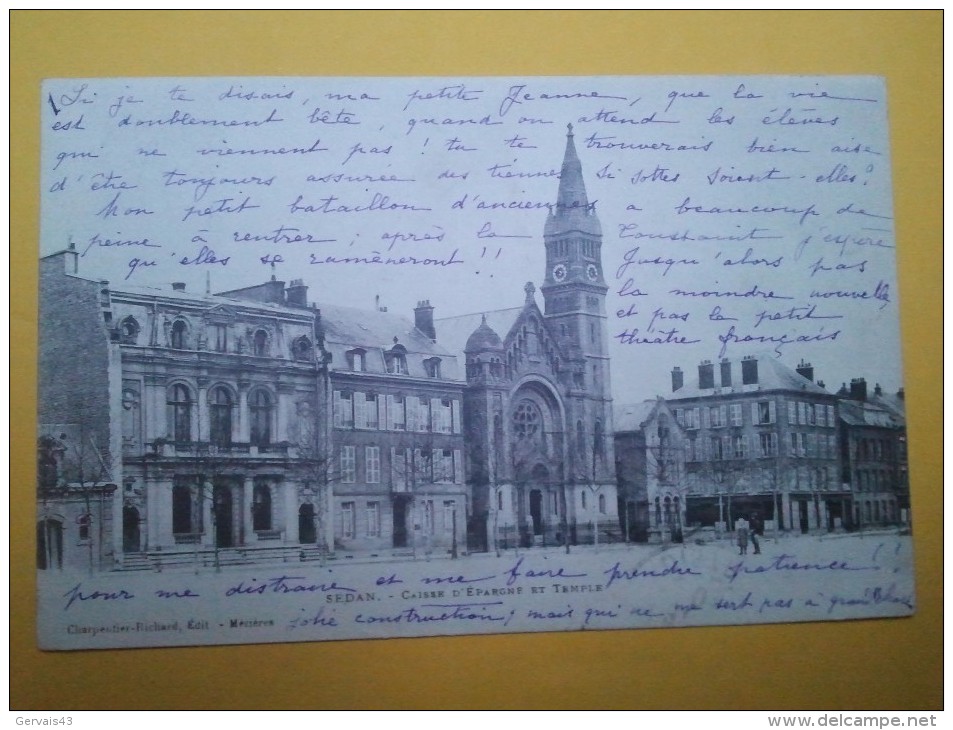 Si je te disais, ma petite Jeanne, que la vie
est doublement bête, quand on attend les élèves
qui ne viennent pas ! tu te trouverais bien aise
d'être toujours assurée des tiennes si sottes soient-elles !
Mon petit bataillon d'anciennes a beaucoup de
peine à rentrer ; après la Toussaint j'espère
qu'elles se ramèneront !!
Jusqu'alors pas
la moindre nouvelle,
et pas le petit
théâtre français
pour me distraire et me faire prendre patience !
SEDAN. - CAISSE D'EPARGNE ET TEMPLE
jolie construction ; mais qui ne me sert pas à grand'chose
Charpentier-Richard, Édit. - Mézières
Gervais43
www.delcampe.net